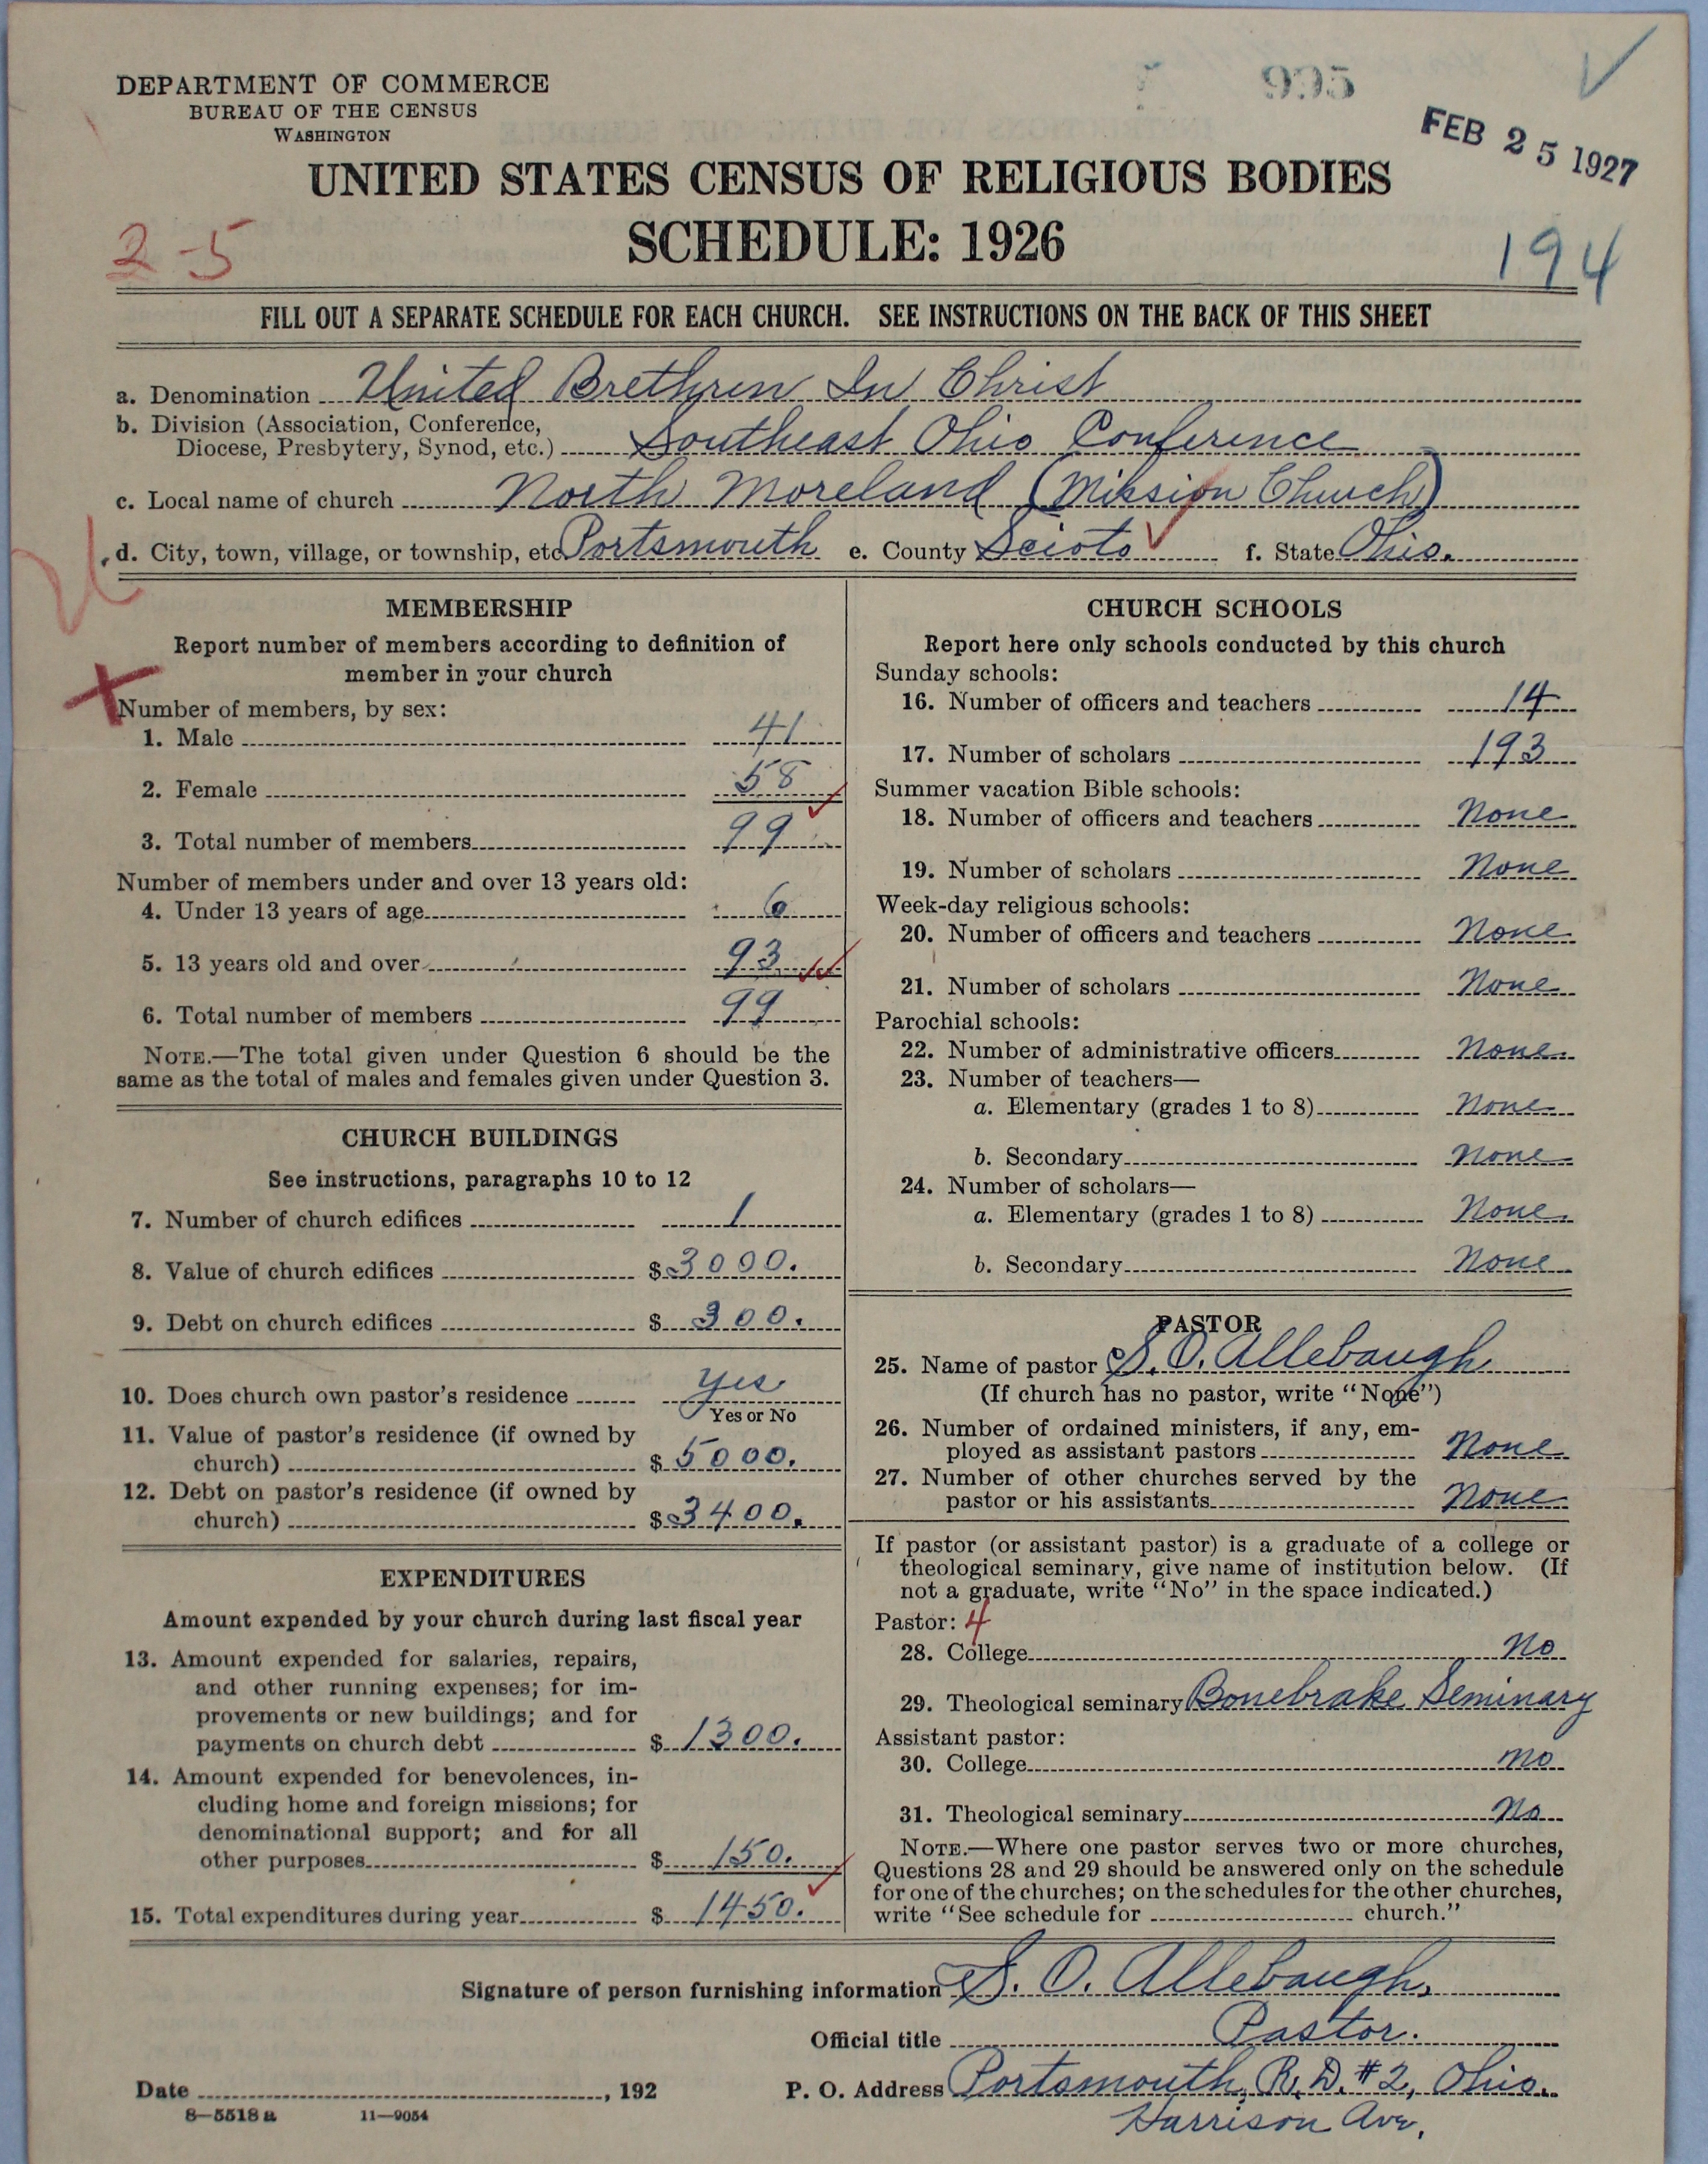 995
DEPARTMENT OF COMMERCE
BUREAU OF THE CENSUS
WASHINGTON
FEB 25 1927
UNITED STATES CENSUS OF RELIGIOUS BODIES
SCHEDULE: 1926
2-5
194
FILL OUT A SEPARATE SCHEDULE FOR EACH CHURCH. SEE INSTRUCTIONS ON THE BACK OF THIS SHEET
a. Denomination United Brethren In Christ
b. Division (Association, Conference,
Diocese, Presbytery, Synod, etc.) Southeast Ohio Conference
c. Local name of church North Moreland (Mission Church)
d. City, town, village, or township, etc. Portsmouth e. County Scioto f. State Ohio.
MEMBERSHIP
Report number of members according to definition of
member in your church
Number of members, by sex:
1. Male 41
2. Female 58
3. Total number of members 99
Number of members under and over 13 years old:
4. Under 13 years of age 6
5. 13 years old and over 93
6. Total number of members 99
NOTE.—The total given under Question 6 should be the
same as the total of males and females given under Question 3.
CHURCH BUILDINGS
See instructions, paragraphs 10 to 12
7. Number of church edifices 1
8. Value of church edifices $ 3000.
9. Debt on church edifices $ 300.
10. Does church own pastor's residence Yes
Yes or No
11. Value of pastor's residence (if owned by
church) $ 5000.
12. Debt on pastor's residence (if owned by
church) $ 3400.
EXPENDITURES
Amount expended by your church during last fiscal year
13. Amount expended for salaries, repairs,
and other running expenses; for im-
provements or new buildings; and for
payments on church debt $ 1300.
14. Amount expended for benevolences, in-
cluding home and foreign missions; for
denominational support; and for all
other purposes $ 150.
15. Total expenditures during year $ 1450.
CHURCH SCHOOLS
Report here only schools conducted by this church
Sunday schools:
16. Number of officers and teachers 14
17. Number of scholars 193
Summer vacation Bible schools:
18. Number of officers and teachers None
19. Number of scholars None
Week-day religious schools:
20. Number of officers and teachers None
21. Number of scholars None
Parochial schools:
22. Number of administrative officers None.
23. Number of teachers—
a. Elementary (grades 1 to 8) None
b. Secondary None
24. Number of scholars—
a. Elementary (grades 1 to 8) None.
b. Secondary None
PASTOR
25. Name of pastor S. O. Allebaugh
(If church has no pastor, write "None")
26. Number of ordained ministers, if any, em-
ployed as assistant pastors None
27. Number of other churches served by the
pastor or his assistants None
If pastor (or assistant pastor) is a graduate of a college or
theological seminary, give name of institution below. (If
not a graduate, write "No" in the space indicated.)
Pastor: 4
28. College No
29. Theological seminary Bonebrake Seminary
Assistant pastor:
30. College No
31. Theological seminary No
NOTE.—Where one pastor serves two or more churches,
Questions 28 and 29 should be answered only on the schedule
for one of the churches; on the schedules for the other churches,
write "See schedule for church."
Signature of person furnishing information S. O. Allebaugh,
Official title Pastor.
Date , 192 P. O. Address Portsmouth, R.D. #2, Ohio.
8—5518a 11—9054
Harrison Ave,